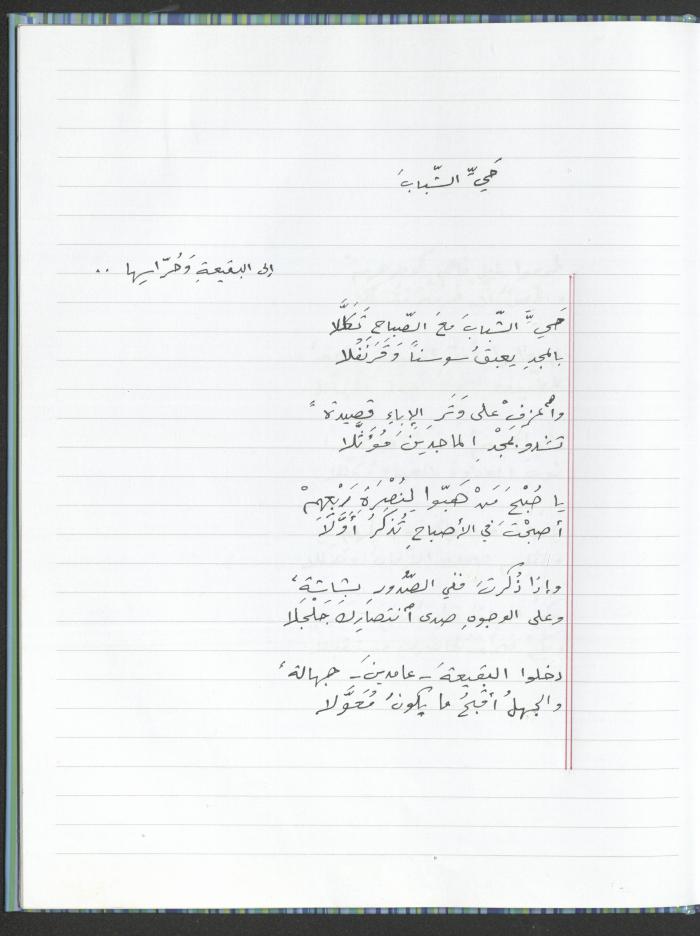 حَيِّ الشّبابَ
إلى البقيعةِ وَحُرّاسِها ..
حَيِّ الشّبابَ معَ الصّباحِ تَكَلَّلا
بالمجدِ يعبقُ سوسناً وَقَرَنْفُلا
وٱعزفْ على وَتَرِ الإباءِ قصيدةً
تشدو بمجْدِ الماجدينَ مُؤَثَّلا
يا صُبْحَ مَنْ هَبّوا لِنُصْرَةِ رَبْعِهِمْ
أصبحْتَ في الأصباحِ تُذكَرُ أَوَّلَا
وإذا ذُكرتَ ففي الصّدورِ بشاشةٌ
وعلى الوجوهِ صدى ٱنتصارِكَ جَلْجَلا
دخلوا البقيعةَ – عامدينَ – جهالةً
والجهلُ أقبحُ ما يكونُ مُعَوَّلا